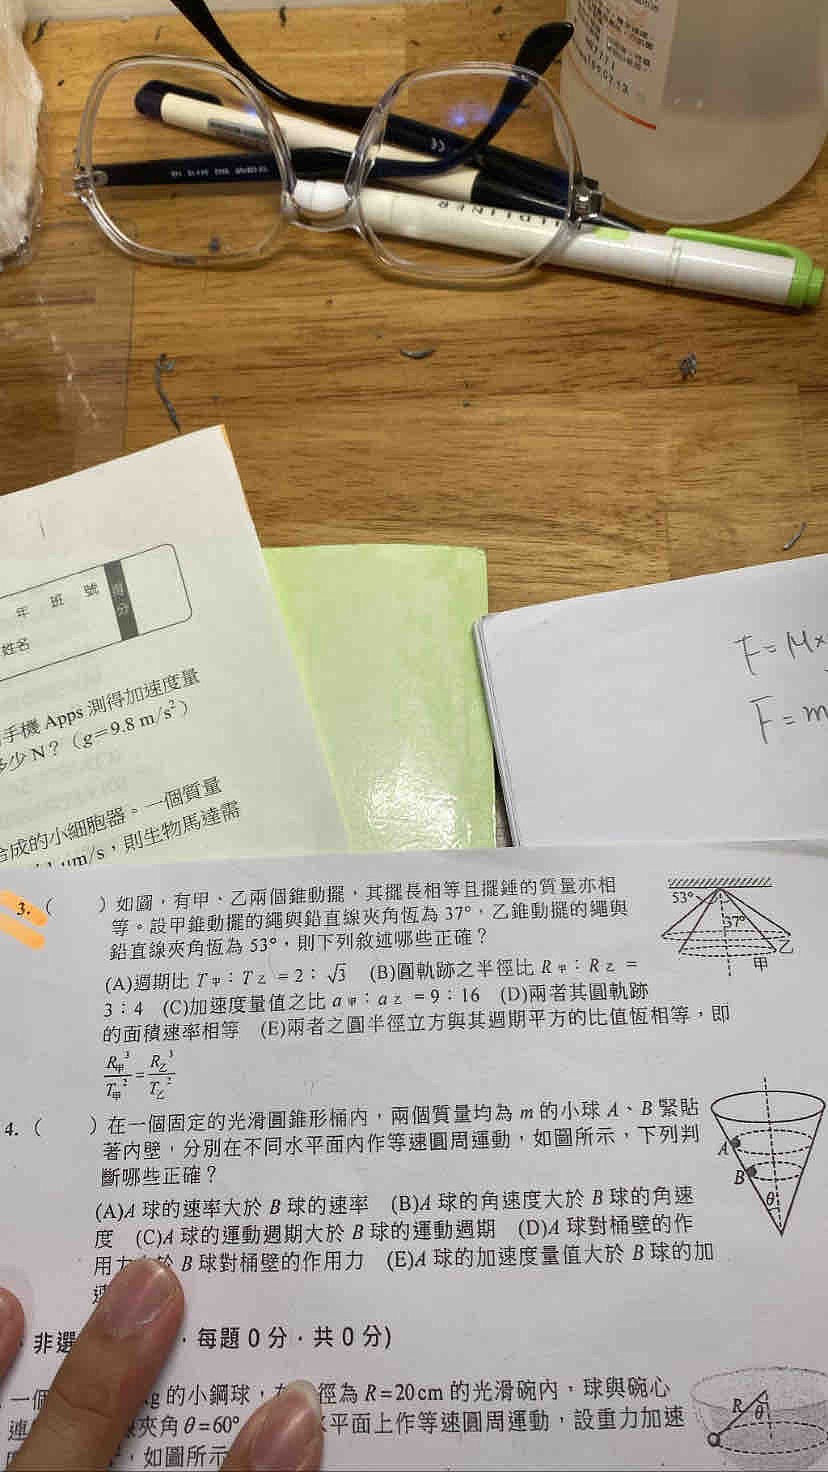 年 班 號
得分
姓名
手機 Apps 測得加速度量
少 N？（g=9.8 m/s²）
合成的小細胞器。一個質量
μm/s，則生物馬達需
F=M×
F=m
3.（ ）如圖，有甲、乙兩個錐動擺，其擺長相等且擺錘的質量亦相
等。設甲錐動擺的繩與鉛直線夾角恆為 37°，乙錐動擺的繩與
鉛直線夾角恆為 53°，則下列敘述哪些正確？
(A)週期比 T甲：T乙 = 2：√3 (B)圓軌跡之半徑比 R甲：R乙 =
3：4 (C)加速度量值之比 a甲：a乙 = 9：16 (D)兩者其圓軌跡
的面積速率相等 (E)兩者之圓半徑立方與其週期平方的比值恆相等，即
R甲³/T甲² = R乙³/T乙²
53°
37°
乙
甲
4.（ ）在一個固定的光滑圓錐形桶內，兩個質量均為 m 的小球 A、B 緊貼
著內壁，分別在不同水平面內作等速圓周運動，如圖所示，下列判
斷哪些正確？
(A)A 球的速率大於 B 球的速率 (B)A 球的角速度大於 B 球的角速
度 (C)A 球的運動週期大於 B 球的運動週期 (D)A 球對桶壁的作
用力 於 B 球對桶壁的作用力 (E)A 球的加速度量值大於 B 球的加
A
B
θ
非選 ，每題 0 分，共 0 分)
一個 g 的小鋼球， 徑為 R=20 cm 的光滑碗內，球與碗心
連 夾角 θ=60° 水平面上作等速圓周運動，設重力加速
，如圖所示
R
θ